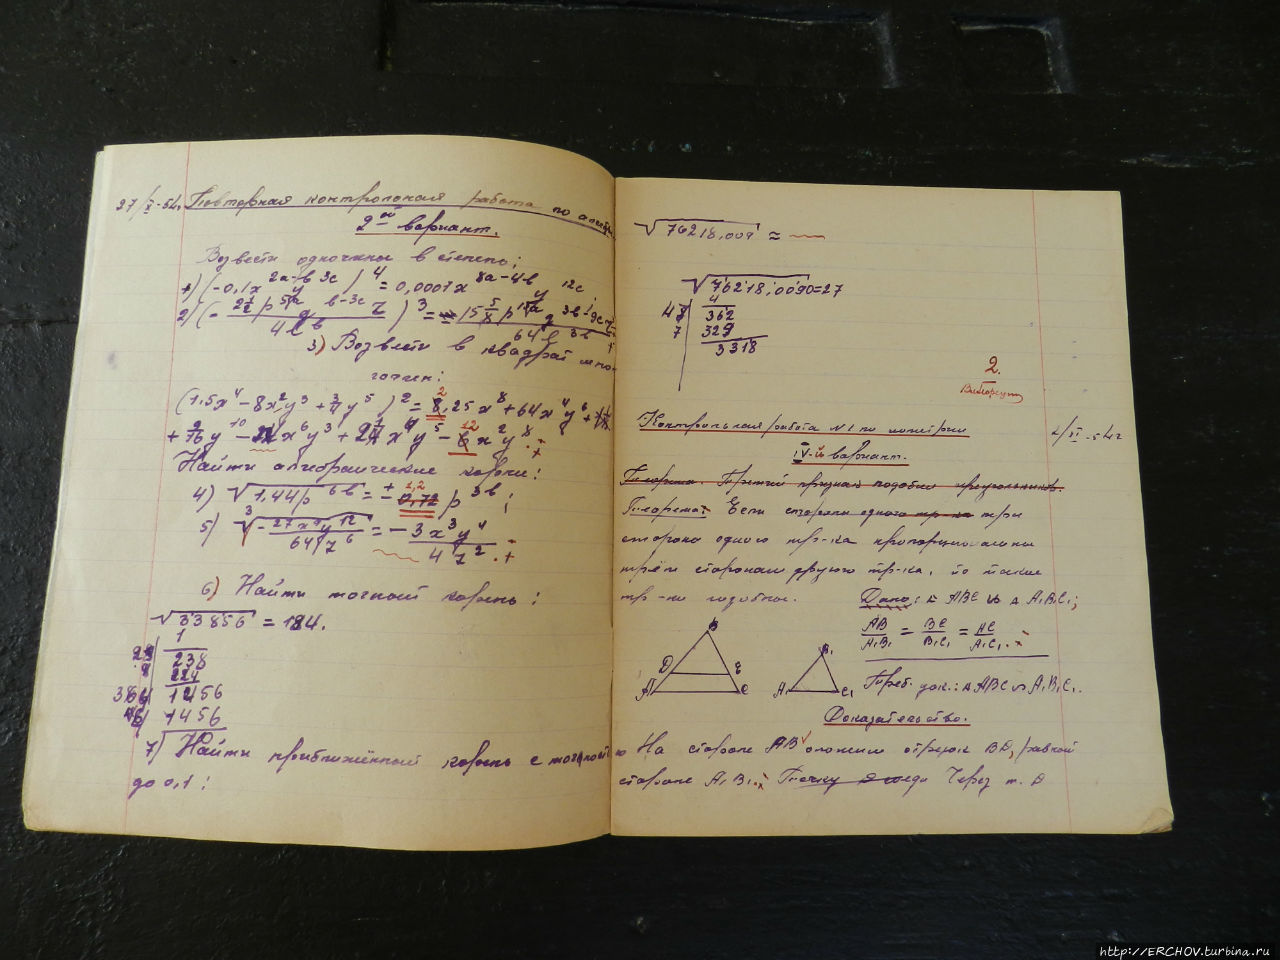 27/X-54г. Повторная контрольная работа по алгебре
2ой вариант.
Возвести одночлены в степень:
1) (-0,1x^{2a-b}y^{3c})^4 = 0,0001x^{8a-4b}y^{12c}
3) Возвести в квадрат мно-
гочлен:
(1,5x^4 - 8x^2y^3 + 3/4y^5)^2 = 8,25x^8 + 64x^4y^6 +
2
12
Найти алгебраические корни:
4) √1,44p^{6b} = ± 0,72 p^{3b};
1,2
5) ∛-27x^9y^{12}/64z^6 = - 3x^3y^4/4z^2.
6) Найти точный корень:
√33856 = 184.
1
28 238
8 224
364 1456
4 1456
0
7) Найти приближённый корень с точностью
до 0,1:
√76218,009 ≈
√76218,0090 = 27
4
47 362
7 329
3318
2.
Контрольная работа №1 по геометрии
4/XI-54г
IV-й вариант.
Теорема. Третий признак подобия треугольников.
Теорема: Если стороны одного тр-ка три
стороны одного тр-ка пропорциональны
трём сторонам другого тр-ка, то такие
тр-ки подобны.
Дано: △ ABC ∽ △ A₁B₁C₁;
AB/A₁B₁ = BC/B₁C₁ = AC/A₁C₁.
B
D E
A C
B₁
A₁ C₁
Треб. док.: △ ABC ∽ A₁B₁C₁.
Доказательство.
На стороне AB отложим отрезок BD, равный
стороне A₁B₁. Точку D Через т. D
http://ERCHOV.turbina.ru